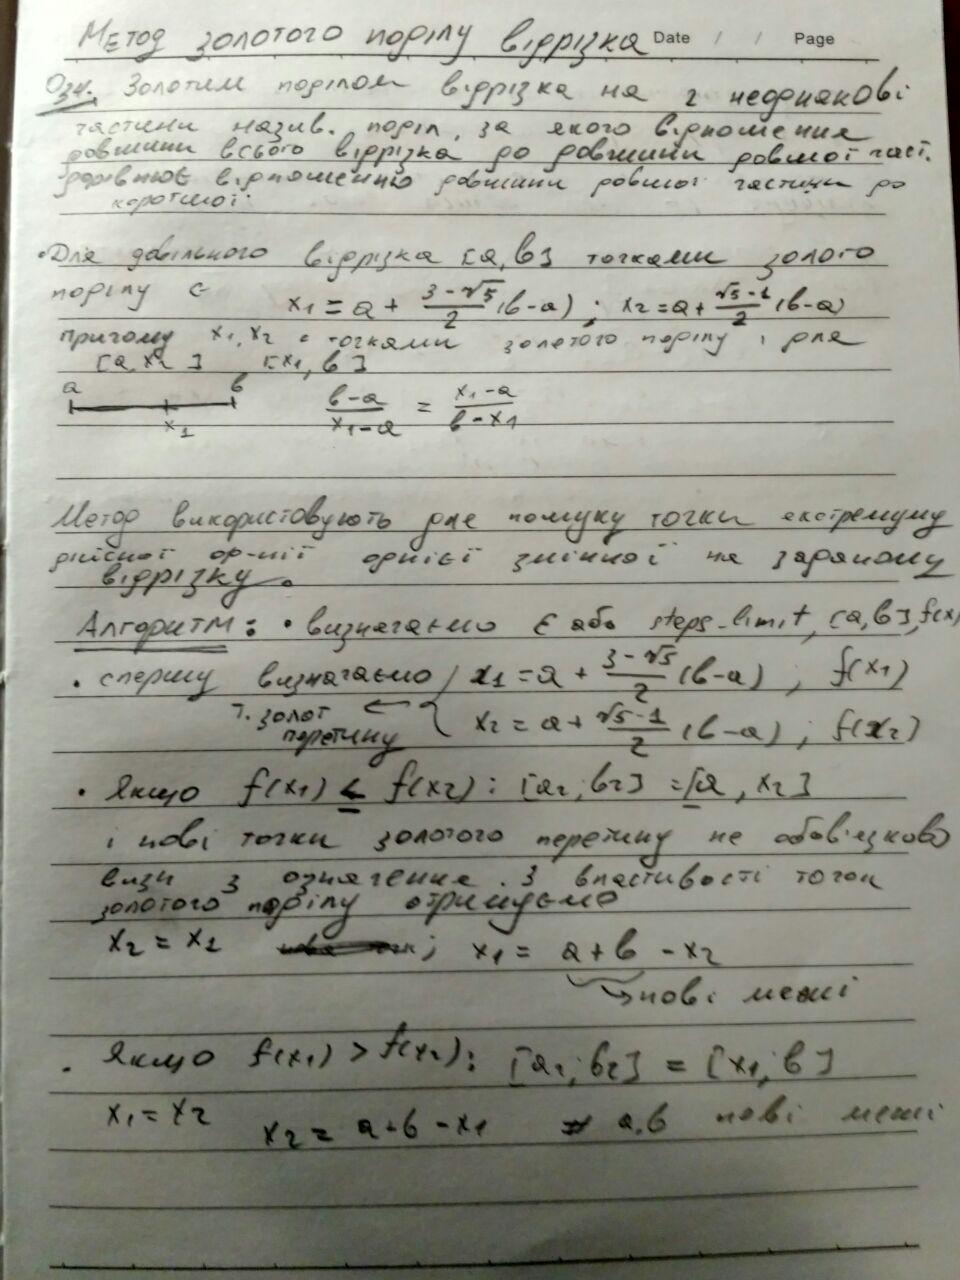 Метод золотого поділу відрізка Date / / Page
Озн. Золотим поділом відрізка на 2 неоднакові
частини назив. поділ, за якого відношення
довжини всього відрізка до довжини довшої част.
дорівнює відношенню довжини довшої частини до
коротшої.
• Для довільного відрізка [a, b] точками золото
поділу є x₁ = a + (3-√5)/2 (b-a) ; x₂ = a + (√5-1)/2 (b-a)
причому x₁, x₂ є точками золотого поділу і для
[a, x₂] [x₁, b]
a b (b-a)/(x₁-a) = (x₁-a)/(b-x₁)
x₁
Метод використовують для пошуку точки екстремуму
дійсної ф-нції однієї змінної на заданому
відрізку.
Алгоритм: • визначаємо ε або steps_limit, [a, b], f(x)
• спершу визначаємо x₁ = a + (3-√5)/2 (b-a) ; f(x₁)
т. золот ← { x₂ = a + (√5-1)/2 (b-a) ; f(x₂)
перетину
• Якщо f(x₁) ≤ f(x₂) : [a₂; b₂] = [a, x₂]
і нові точки золотого перетину не обов'язково
визн з означення. З властивості точок
золотого поділу отримуємо
x₂ = x₁ ; x₁ = a + b - x₂
→ нові межі
• Якщо f(x₁) > f(x₂) : [a₂; b₂] = [x₁; b]
x₁ = x₂ x₂ = a + b - x₁ a, b нові межі